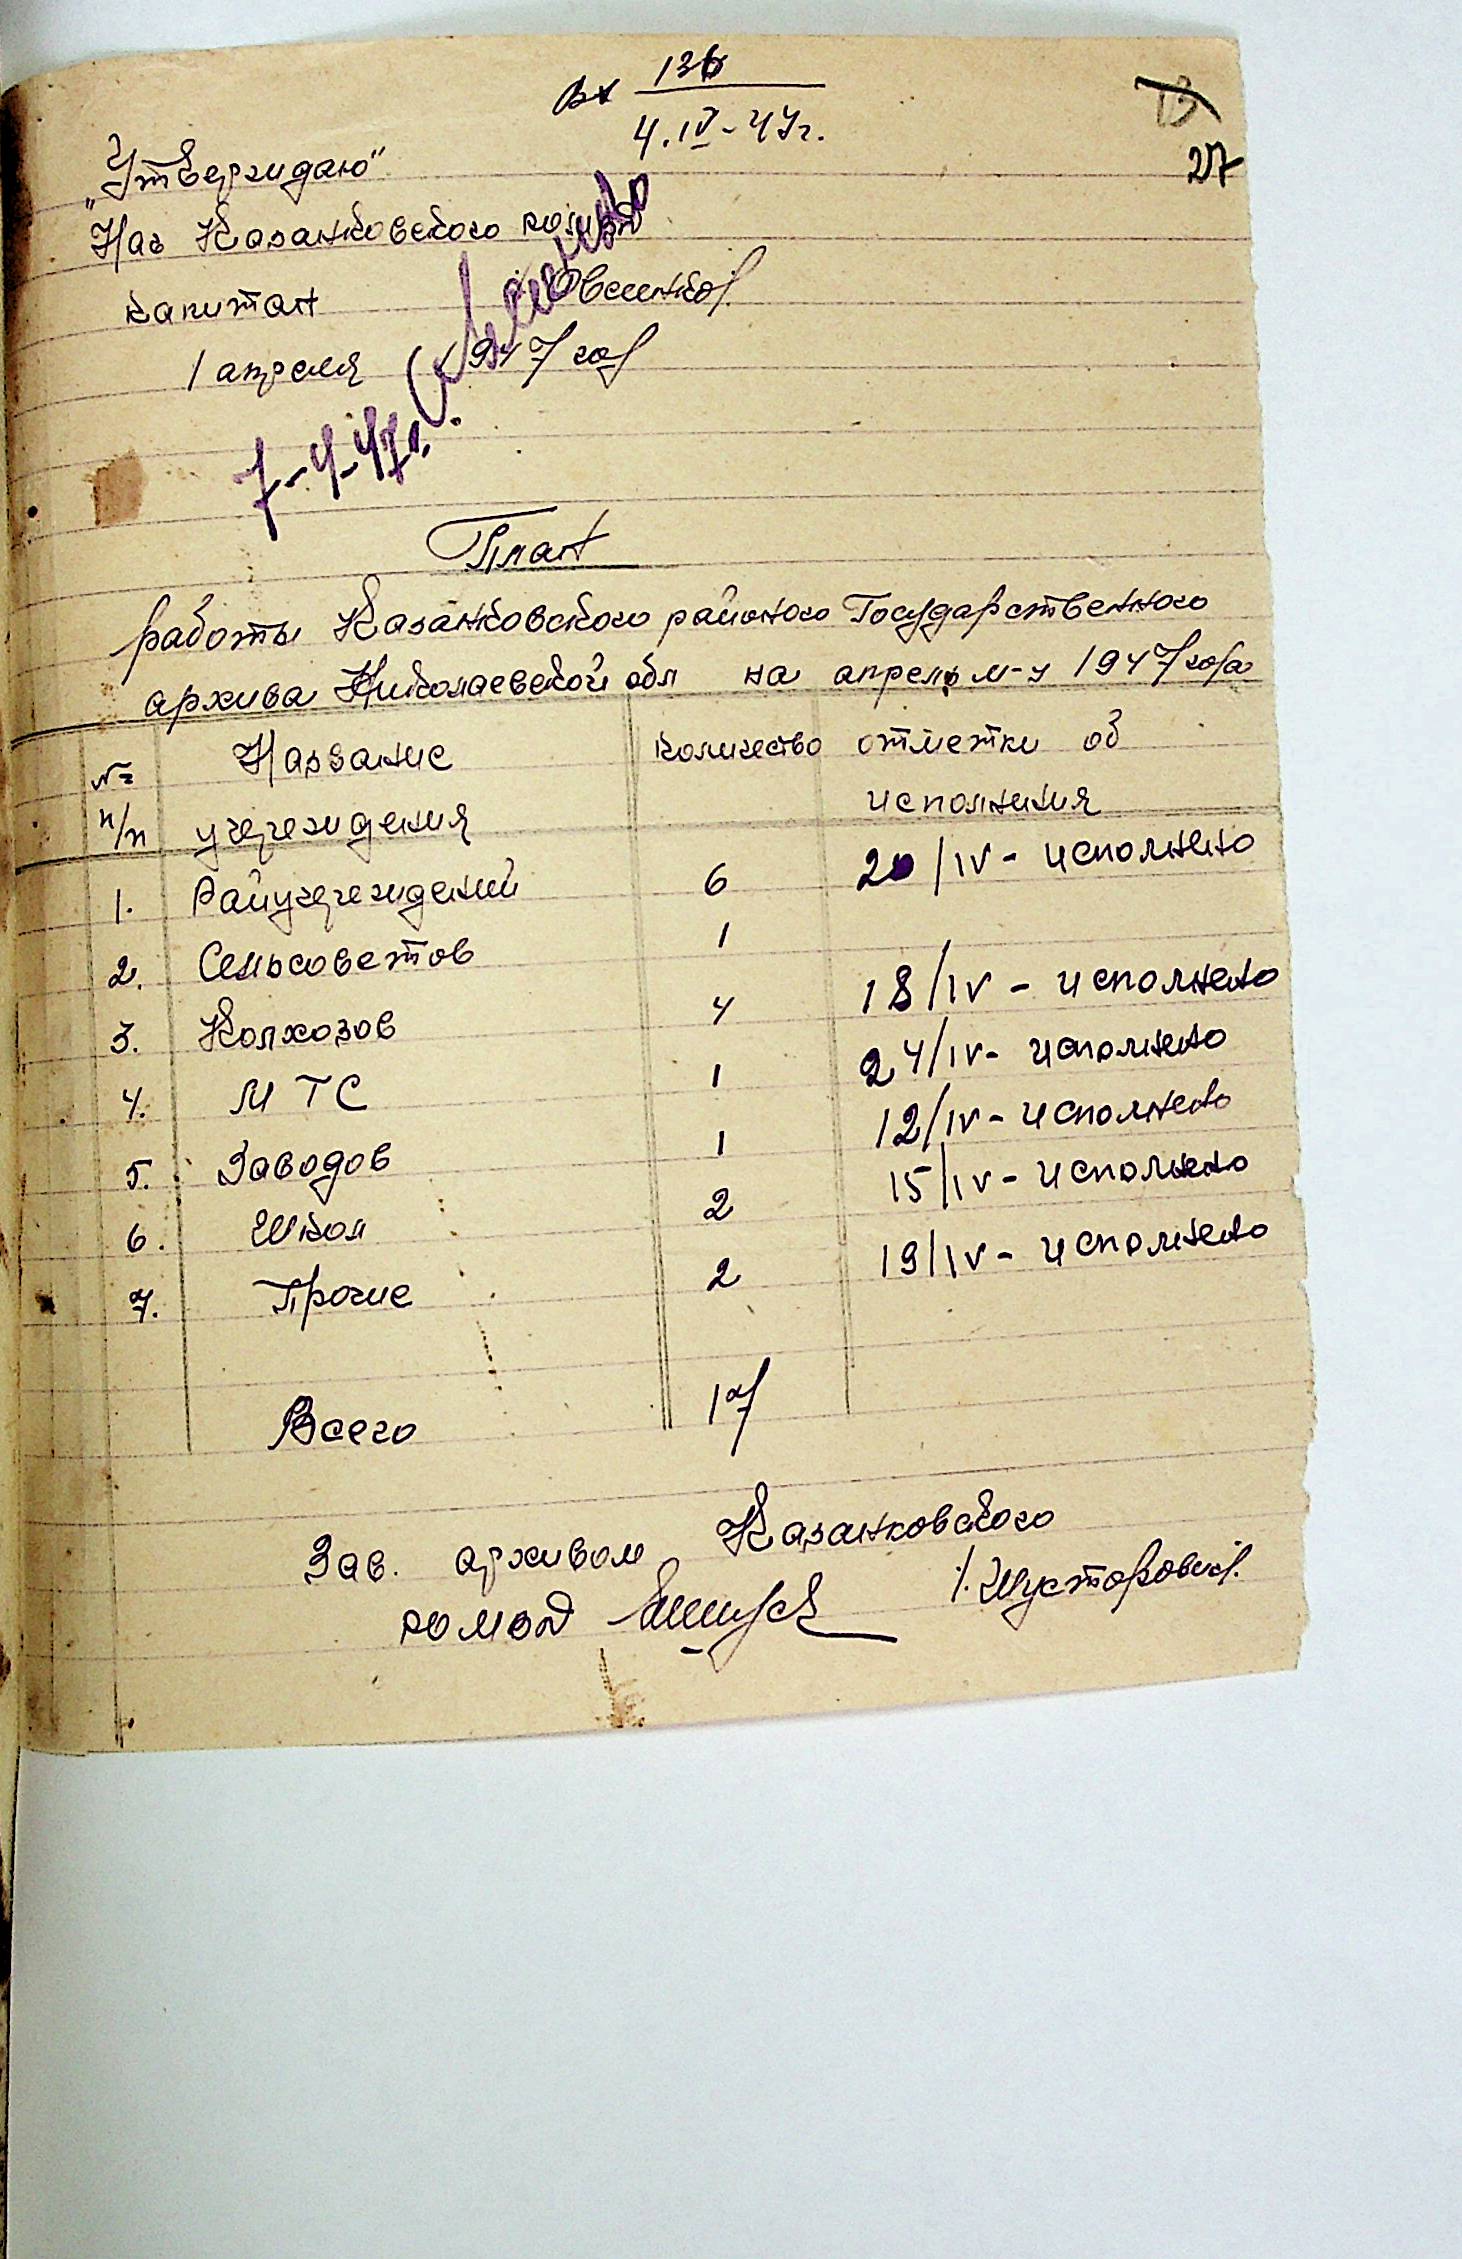 Вх 136
4.IV-47г.
13
27
„Утверждаю“
Нач Казанковского ромвд
капитан /Овсиенко/
1 апреля 1947 год
7-4-47г.
План
работы Казанковского районого Государственного
архива Николаевской обл на апрель м-ц 1947 года
№ Название количество отметки об
п/п учереждения исполнения
1. Райучереждений 6 20/IV - исполнено
2. Сельсоветов 1
3. Колхозов 4 18/IV - исполнено
4. МТС 1 24/IV - исполнено
5. Заводов 1 12/IV - исполнено
6. Школ 2 15/IV - исполнено
7. Прочие 2 19/IV - исполнено
Всего 17
Зав. архивом Казанковского
ромвд /Шусторович/